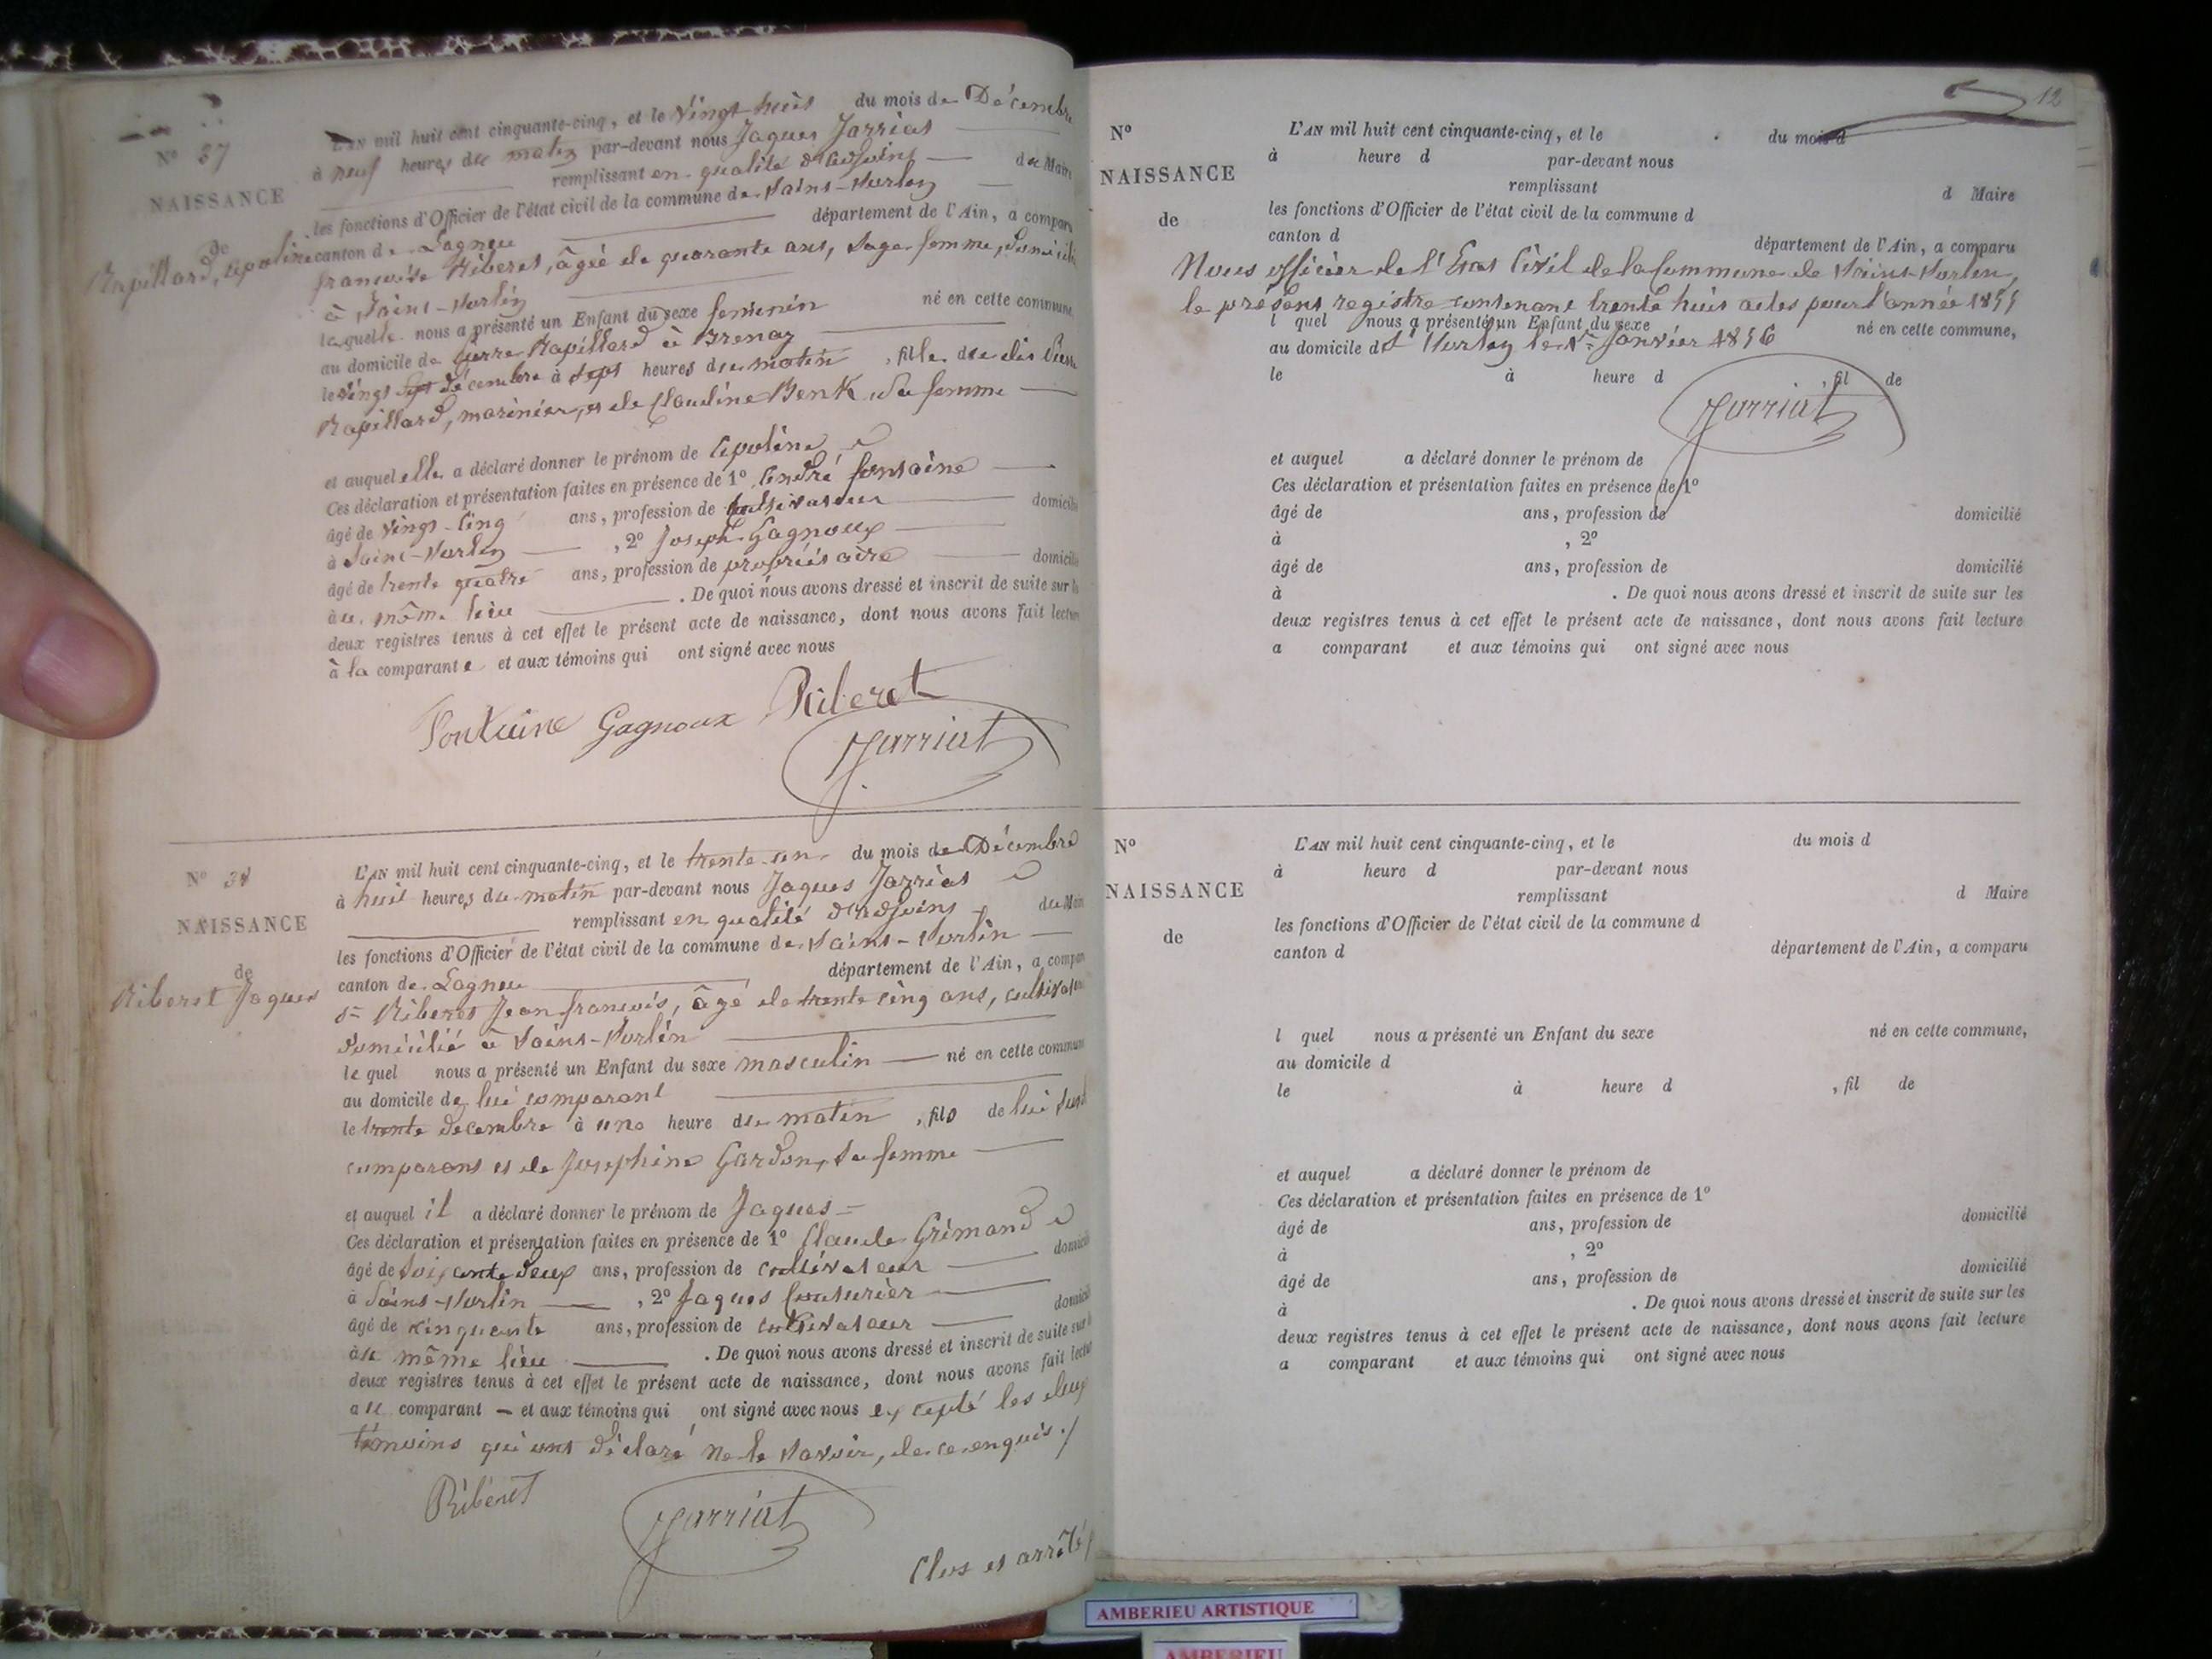 N° 37
NAISSANCE
de
Rapillard, Apoline
L'AN mil huit cent cinquante-cinq, et le Vingt huit du mois de Décembre
à neuf heures du matin par-devant nous Jaques Jarriat
remplissant en qualité d'adjoint du Maire
les fonctions d'Officier de l'état civil de la commune de Saint-Vorlin
canton de Lagneu département de l'Ain, a comparu
françoise Riberet, âgée de quarante ans, Sage-femme, domicilié
à Saint-Vorlin
laquelle nous a présenté un Enfant du sexe feminin né en cette commune,
au domicile de pierre Rapillard à Brenaz
le vingt sept décembre à sept heures du matin, fille du dit Pierre
Rapillard, marinier, et de Claudine Benk, sa femme
et auquel elle a déclaré donner le prénom de Apoline
Ces déclaration et présentation faites en présence de 1° André fontaine
âgé de vingt-cinq ans, profession de cultivateur domicilié
à Saint-Vorlin, 2° Joseph Gagnoux
âgé de trente quatre ans, profession de propriétaire domicilié
au même lieu. De quoi nous avons dressé et inscrit de suite sur les
deux registres tenus à cet effet le présent acte de naissance, dont nous avons fait lecture
à la comparante et aux témoins qui ont signé avec nous
Fontaine Gagnoux Riberet
Jarriat
N° 38
NAISSANCE
de
Riberet Jaques
L'AN mil huit cent cinquante-cinq, et le trente-un du mois de Décembre
à huit heures du matin par-devant nous Jaques Jarriat
remplissant en qualité d'adjoint du Maire
les fonctions d'Officier de l'état civil de la commune de Saint-Vorlin
canton de Lagneu département de l'Ain, a comparu
sr Riberet Jean françois, âgé de trente cinq ans, cultivateur
domicilié à Saint-Vorlin
lequel nous a présenté un Enfant du sexe masculin né en cette commune
au domicile de lui comparant
le trente décembre à une heure du matin, fils de lui
comparant et de Josephine Gardon, sa femme
et auquel il a déclaré donner le prénom de Jaques
Ces déclaration et présentation faites en présence de 1° Claude Grimand
âgé de soixante deux ans, profession de cultivateur domicilié
à Saint-Vorlin, 2° Jaques Couturier
âgé de cinquante ans, profession de cultivateur domicilié
au même lieu. De quoi nous avons dressé et inscrit de suite sur les
deux registres tenus à cet effet le présent acte de naissance, dont nous avons fait lecture
au comparant et aux témoins qui ont signé avec nous excepté les deux
témoins qui ont déclaré ne le savoir, de ce enquis ./
Riberet
Jarriat
Clos et arrêté
12
N°
NAISSANCE
de
L'AN mil huit cent cinquante-cinq, et le du mois d
à heure d par-devant nous
remplissant d Maire
les fonctions d'Officier de l'état civil de la commune d
canton d département de l'Ain, a comparu
Nous officier de l'Etat Civil de la Commune de Saint-Vorlin,
le présent registre contenant trente huit actes pour l'année 1855
l quel nous a présenté un Enfant du sexe né en cette commune,
au domicile d St Vorlin le 1er Janvier 1856
le à heure d, fil de
Jarriat
et auquel a déclaré donner le prénom de
Ces déclaration et présentation faites en présence de 1°
âgé de ans, profession de domicilié
à , 2°
âgé de ans, profession de domicilié
à . De quoi nous avons dressé et inscrit de suite sur les
deux registres tenus à cet effet le présent acte de naissance, dont nous avons fait lecture
a comparant et aux témoins qui ont signé avec nous
N°
NAISSANCE
de
L'AN mil huit cent cinquante-cinq, et le du mois d
à heure d par-devant nous
remplissant d Maire
les fonctions d'Officier de l'état civil de la commune d
canton d département de l'Ain, a comparu
l quel nous a présenté un Enfant du sexe né en cette commune,
au domicile d
le à heure d , fil de
et auquel a déclaré donner le prénom de
Ces déclaration et présentation faites en présence de 1°
âgé de ans, profession de domicilié
à , 2°
âgé de ans, profession de domicilié
à . De quoi nous avons dressé et inscrit de suite sur les
deux registres tenus à cet effet le présent acte de naissance, dont nous avons fait lecture
a comparant et aux témoins qui ont signé avec nous
AMBERIEU ARTISTIQUE
AMBERIEU